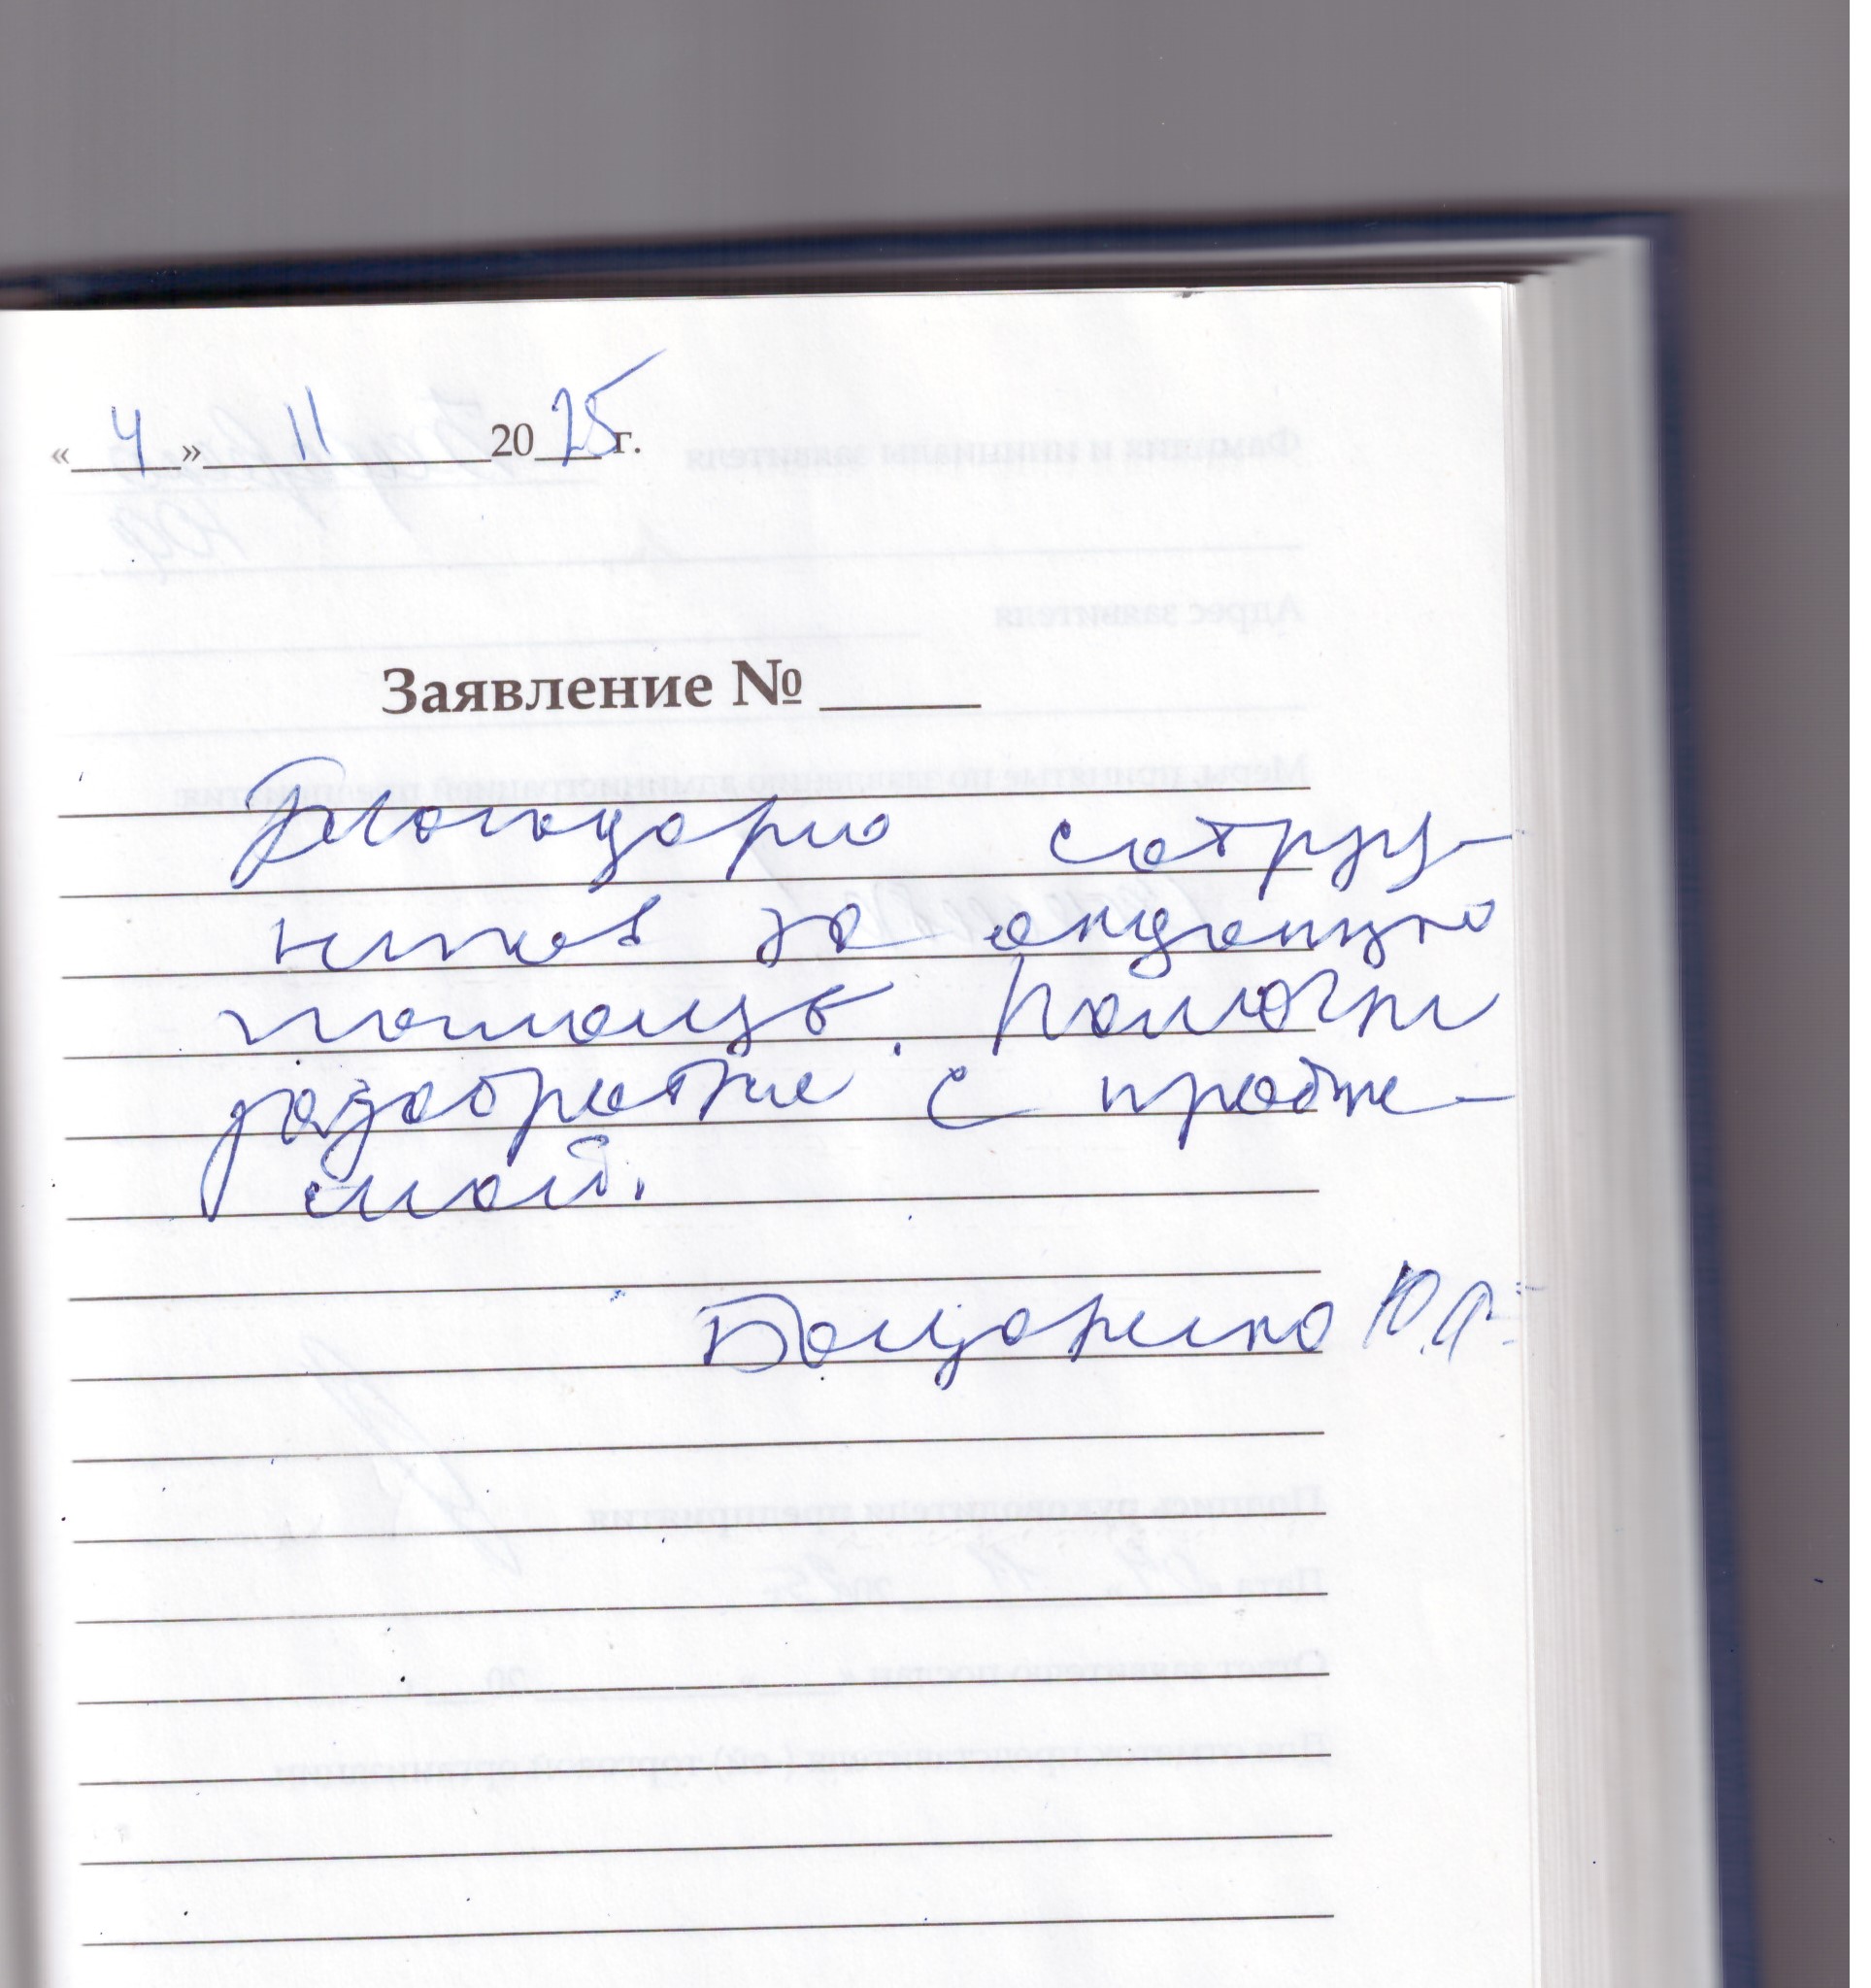 « 4 » 11 2025 г.
Заявление №
Благодарю сотруд-
ников за оказанную
помощь. Помогли
разобраться с пробле-
мой.
Ю.А.